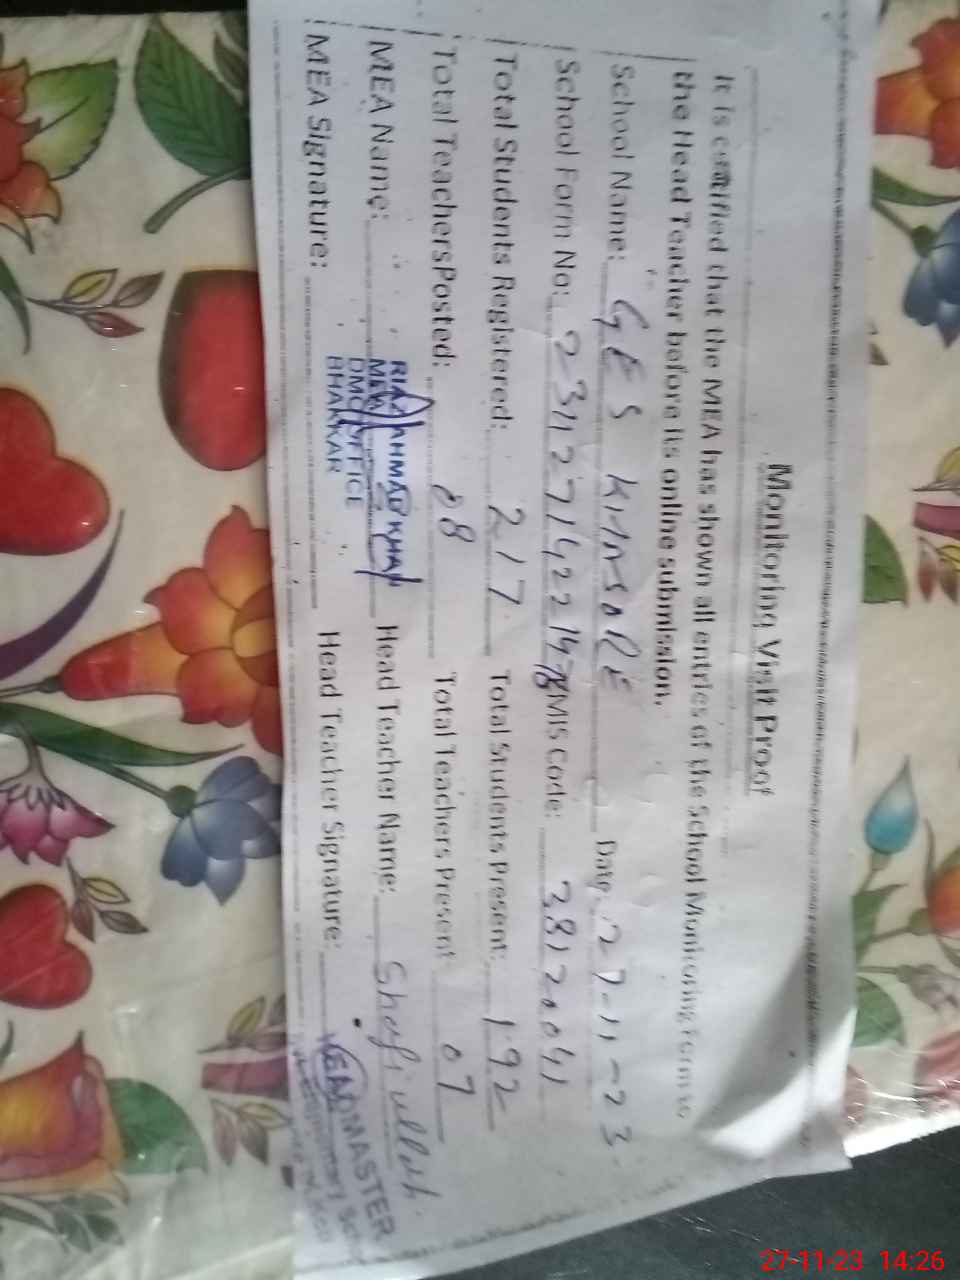 Monitoring Visit Proof
It is certified that the MEA has shown all entries of the School Monitoring Form to
the Head Teacher before its online submission.
School Name: GES KINSOLE Date: 27-11-23
School Form No: EMIS Code: 38120041
Total Students Registered: 217 Total Students Present: 192
Total TeachersPosted: 08 Total Teachers Present 07
MEA Name: RIAZ AHMAD KHAN Head Teacher Name: Shafiullah
MEA
DMO OFFICE
BHAKKAR
MEA Signature: Head Teacher Signature:
HEADMASTER
27-11-23 14:26